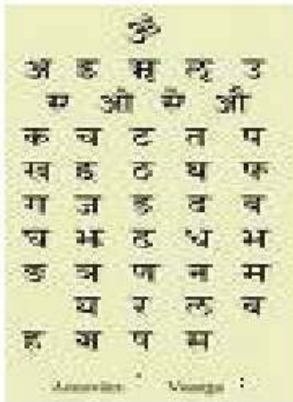 ॐ
अ इ ऋ ऌ उ
ए ओ ऐ औ
क च ट त प
ख छ ठ थ फ
ग ज ड द ब
घ झ ढ ध भ
ङ ञ ण न म
य र ल व
ह श ष स
Anusvāra ं Visarga :